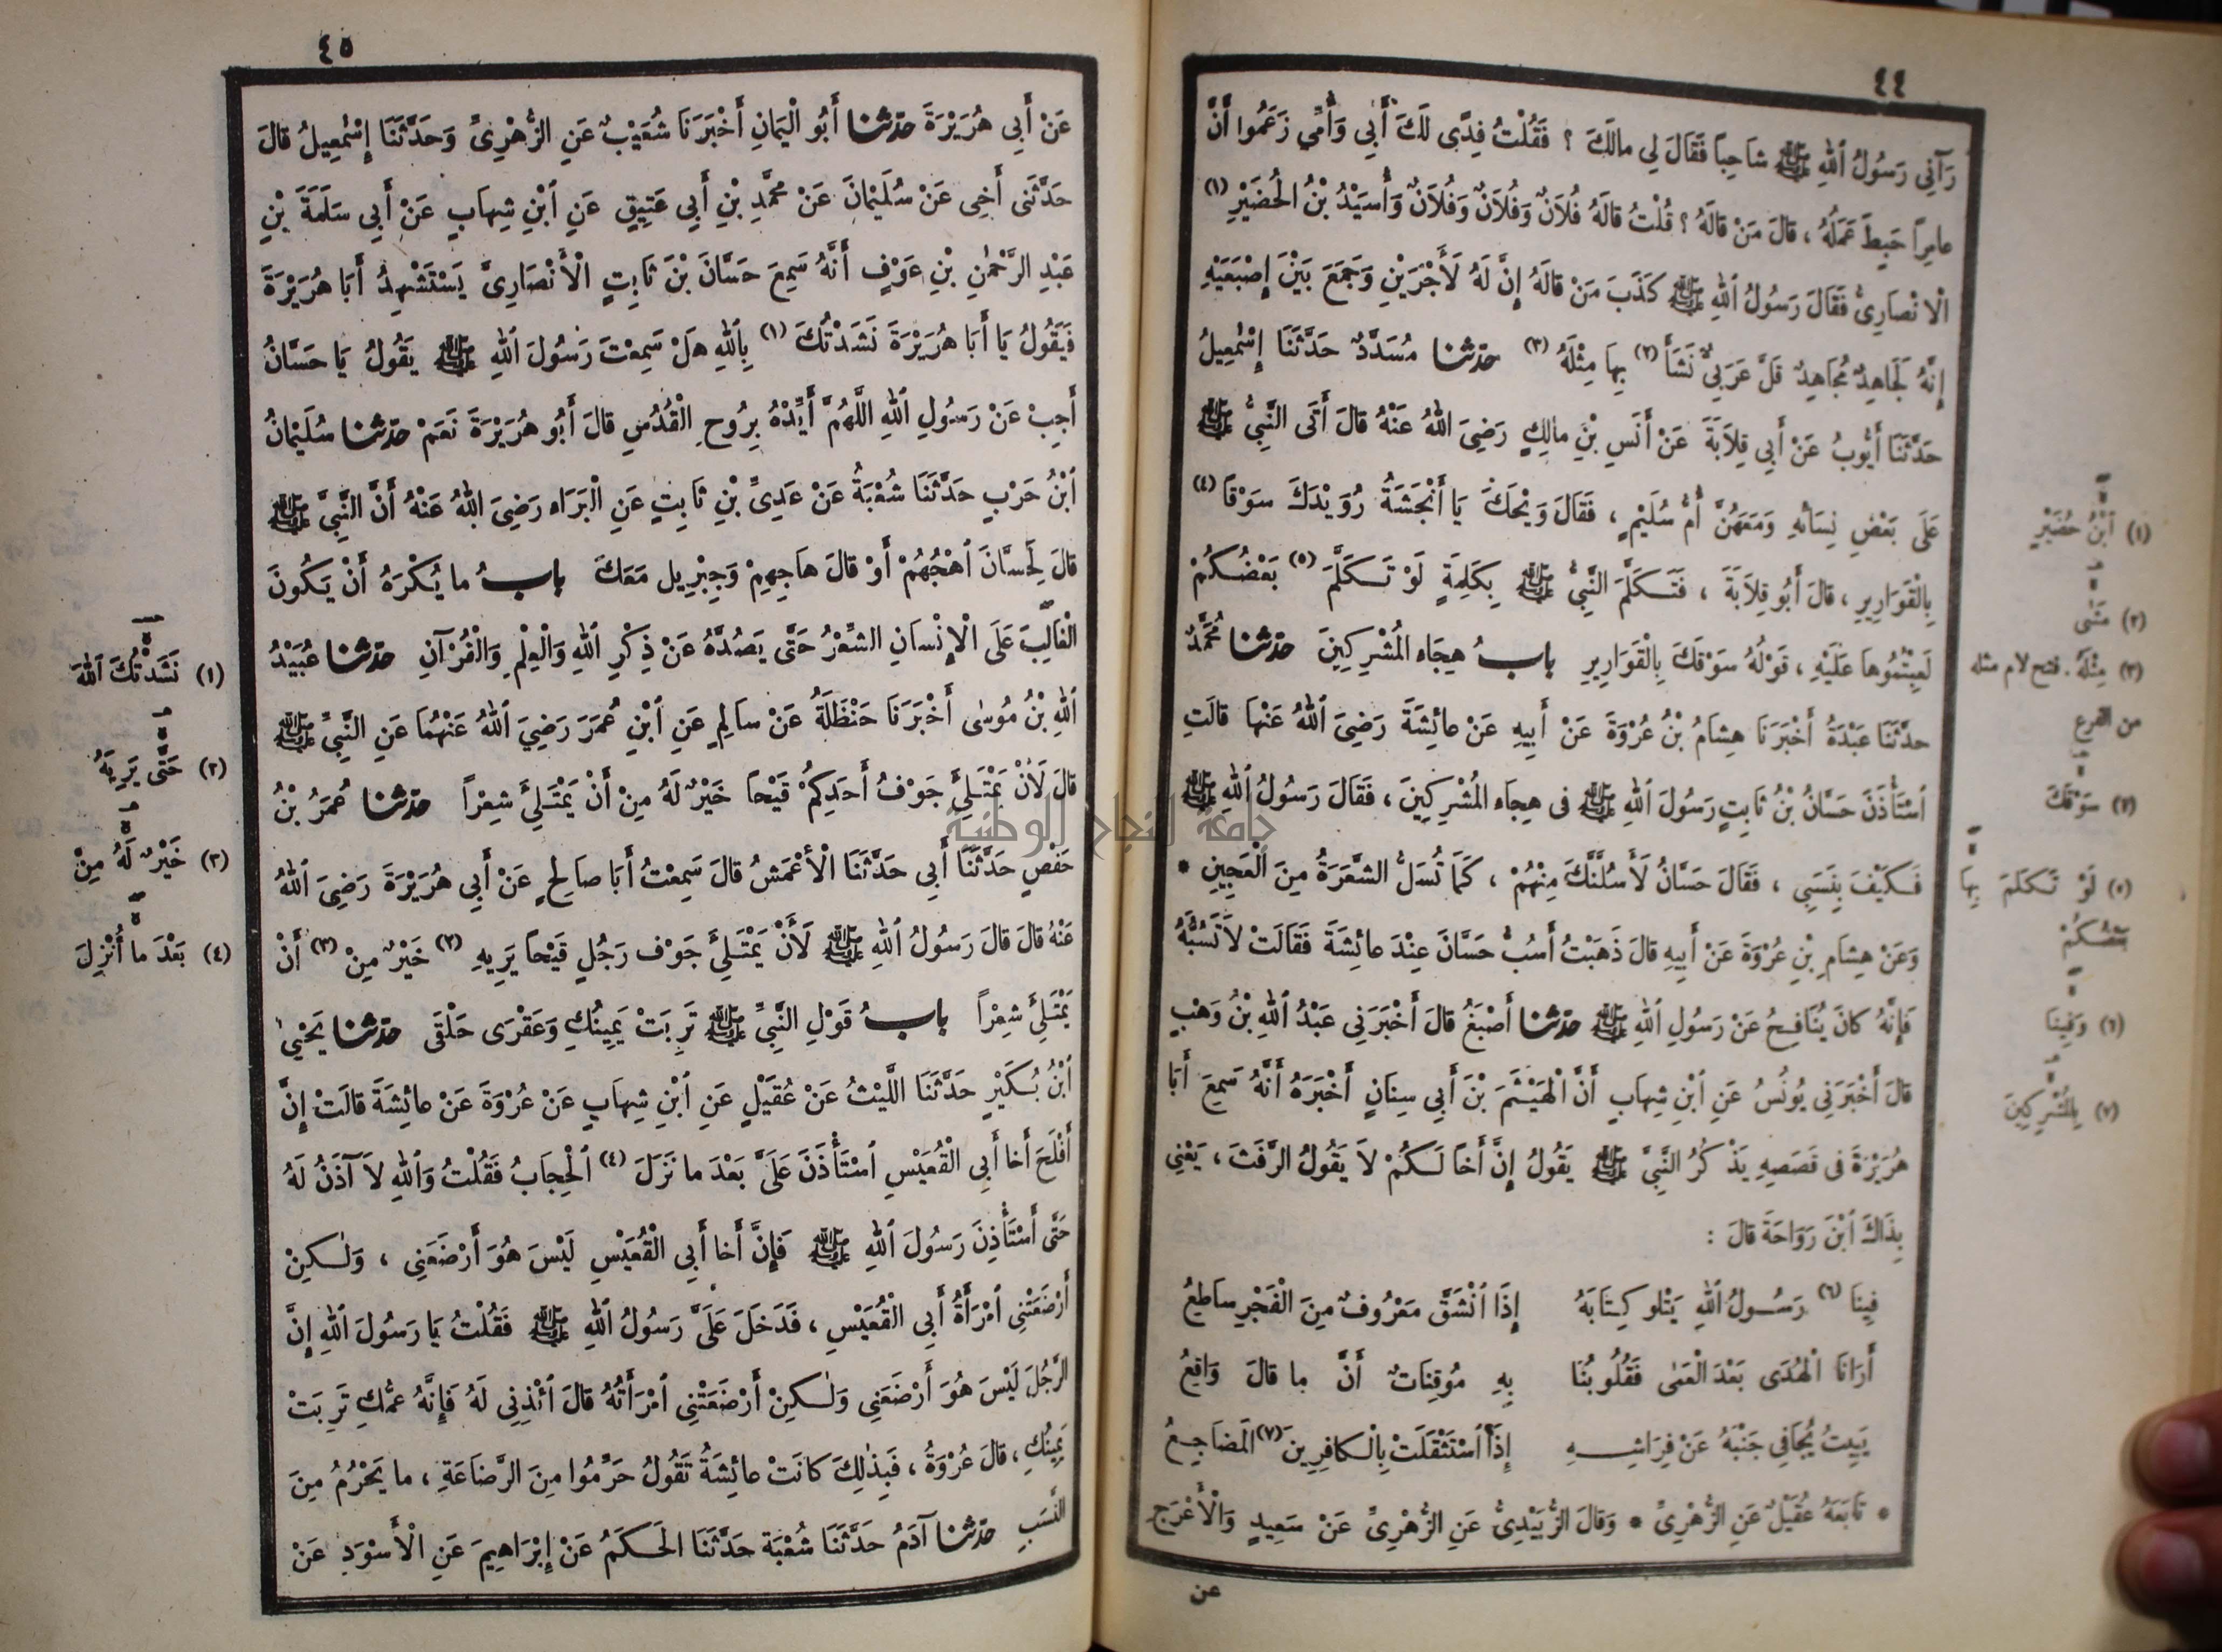 ٤٤
رَآنِي رَسُولُ ٱللهِ ﷺ شاحِبًا فَقَالَ لِي مالَكَ ؟ فَقُلْتُ فِدًى لَكَ أَبِي وَأُمِّي زَعَمُوا أَنَّ
عامِرًا حَبِطَ عَمَلُهُ ، قالَ مَنْ قالَهُ ؟ قُلْتُ قالَهُ فُلاَنٌ وَفُلاَنٌ وَفُلاَنٌ وَأُسَيْدُ بْنُ الْحُضَيْرِ (١)
الْأَنْصَارِيُّ فَقَالَ رَسُولُ ٱللهِ ﷺ كَذَبَ مَنْ قالَهُ إِنَّ لَهُ لَأَجْرَيْنِ وَجَمَعَ بَيْنَ إِصْبَعَيْهِ
إِنَّهُ لَجَاهِدٌ مُجَاهِدٌ قَلَّ عَرَبِيٌّ نَشَأَ (٢) بِهَا مِثْلَهُ (٣) حدّثنا مُسَدَّدٌ حَدَّثَنَا إِسْمٰعِيلُ
حَدَّثَنَا أَيُّوبُ عَنْ أَبِي قِلاَبَةَ عَنْ أَنَسِ بْنِ مالِكٍ رَضِيَ اللهُ عَنْهُ قالَ أَتَى النَّبِيُّ ﷺ
عَلَى بَعْضِ نِسَائِهِ وَمَعَهُنَّ أُمُّ سُلَيْمٍ ، فَقَالَ وَيْحَكَ يَا أَنْجَشَةُ رُوَيْدَكَ سَوْقًا (٤)
بِالْقَوَارِيرِ ، قالَ أَبُو قِلاَبَةَ ، فَتَكَلَّمَ النَّبِيُّ ﷺ بِكَلِمَةٍ لَوْ تَكَلَّمَ (٥) بَعْضُكُمْ
لَعِبْتُمُوهَا عَلَيْهِ ، قَوْلُهُ سَوْقَكَ بِالْقَوَارِيرِ بابُ هِجَاءِ الْمُشْرِكِينَ حدّثنا مُحَمَّدٌ
حَدَّثَنَا عَبْدَةُ أَخْبَرَنَا هِشَامُ بْنُ عُرْوَةَ عَنْ أَبِيهِ عَنْ عائِشَةَ رَضِيَ اللهُ عَنْهَا قالَتِ
ٱسْتَأْذَنَ حَسَّانُ بْنُ ثَابِتٍ رَسُولَ ٱللهِ ﷺ فِى هِجَاءِ الْمُشْرِكِينَ ، فَقَالَ رَسُولُ ٱللهِ ﷺ
فَكَيْفَ بِنَسَبِي ، فَقَالَ حَسَّانُ لَأَسُلَّنَّكَ مِنْهُمْ ، كَمَا تُسَلُّ الشَّعَرَةُ مِنَ الْعَجِينِ *
وَعَنْ هِشَامِ بْنِ عُرْوَةَ عَنْ أَبِيهِ قالَ ذَهَبْتُ أَسُبُّ حَسَّانَ عِنْدَ عائِشَةَ فَقَالَتْ لاَ تَسُبَّهُ
فَإِنَّهُ كانَ يُنَافِحُ عَنْ رَسُولِ ٱللهِ ﷺ حدّثنا أَصْبَغُ قالَ أَخْبَرَنِى عَبْدُ اللهِ بْنُ وَهْبٍ
قالَ أَخْبَرَنِى يُونُسُ عَنِ ٱبْنِ شِهَابٍ أَنَّ الْهَيْثَمَ بْنَ أَبِي سِنَانٍ أَخْبَرَهُ أَنَّهُ سَمِعَ أَبَا
هُرَيْرَةَ فى قَصَصِهِ يَذْكُرُ النَّبِيَّ ﷺ يَقُولُ إِنَّ أَخًا لَكُمْ لاَ يَقُولُ الرَّفَثَ ، يَعْنِي
بِذَاكَ ٱبْنَ رَوَاحَةَ قالَ :
فِينَا (٦) رَسُولُ ٱللهِ يَتْلُو كِتَابَهُ إِذَا ٱنْشَقَّ مَعْرُوفٌ مِنَ الْفَجْرِ ساطِعُ
أَرَانَا الْهُدَى بَعْدَ الْعَمٰى فَقُلُوبُنَا بِهِ مُوقِنَاتٌ أَنَّ ما قالَ وَاقِعُ
يَبِيتُ يُجَافِي جَنْبَهُ عَنْ فِرَاشِهِ إِذَا ٱسْتَثْقَلَتْ بِالْكافِرِينَ (٧) الْمَضَاجِعُ
* تَابَعَهُ عُقَيْلٌ عَنِ الزُّهْرِيِّ * وَقالَ الزُّبَيْدِيُّ عَنِ الزُّهْرِيِّ عَنْ سَعِيدٍ وَالْأَعْرَجِ
عن
(١) ٱبْنُ حُضَيْرٍ
(٢) مَشٰى
(٣) مِثْلَهُ . فتح لام مثله
من الفرع
(٤) سَوْقَكَ
(٥) لَوْ تَكَلَّمَ بِهَا
بَعْضُكُمْ
(٦) وَفِينَا
(٧) بِالْمُشْرِكِينَ
٤٥
عَنْ أَبِي هُرَيْرَةَ حدّثنا أَبُو الْيَمَانِ أَخْبَرَنَا شُعَيْبٌ عَنِ الزُّهْرِيِّ وَحَدَّثَنَا إِسْمٰعِيلُ قالَ
حَدَّثَنِى أَخِى عَنْ سُلَيْمَانَ عَنْ مُحَمَّدِ بْنِ أَبِي عَتِيقٍ عَنِ ٱبْنِ شِهَابٍ عَنْ أَبِي سَلَمَةَ بْنِ
عَبْدِ الرَّحْمٰنِ بْنِ عَوْفٍ أَنَّهُ سَمِعَ حَسَّانَ بْنَ ثَابِتٍ الْأَنْصَارِيَّ يَسْتَشْهِدُ أَبَا هُرَيْرَةَ
فَيَقُولُ يَا أَبَا هُرَيْرَةَ نَشَدْتُكَ (١) بِٱللهِ هَلْ سَمِعْتَ رَسُولَ ٱللهِ ﷺ يَقُولُ يَا حَسَّانُ
أَجِبْ عَنْ رَسُولِ ٱللهِ اللَّهُمَّ أَيِّدْهُ بِرُوحِ الْقُدُسِ قالَ أَبُو هُرَيْرَةَ نَعَمْ حدّثنا سُلَيْمانُ
ٱبْنُ حَرْبٍ حَدَّثَنَا شُعْبَةُ عَنْ عَدِيِّ بْنِ ثَابِتٍ عَنِ الْبَرَاءِ رَضِيَ اللهُ عَنْهُ أَنَّ النَّبِيَّ ﷺ
قالَ لِحَسَّانَ ٱهْجُهُمْ أَوْ قالَ هَاجِهِمْ وَجِبْرِيل مَعَكَ بابُ ما يُكْرَهُ أَنْ يَكُونَ
الْغَالِبَ عَلَى الْإِنْسَانِ الشِّعْرُ حَتَّى يَصُدَّهُ عَنْ ذِكْرِ ٱللهِ وَالْعِلْمِ وَالْقُرْآنِ حدّثنا عُبَيْدُ
ٱللهِ بْنُ مُوسٰى أَخْبَرَنَا حَنْظَلَةُ عَنْ سالِمٍ عَنِ ٱبْنِ عُمَرَ رَضِيَ اللهُ عَنْهُمَا عَنِ النَّبِيِّ ﷺ
قالَ لَأَنْ يَمْتَلِئَ جَوْفُ أَحَدِكُمْ قَيْحًا خَيْرٌ لَهُ مِنْ أَنْ يَمْتَلِئَ شِعْرًا حدّثنا عُمَرُ بْنُ
حَفْصٍ حَدَّثَنَا أَبِي حَدَّثَنَا الْأَعْمَشُ قالَ سَمِعْتُ أَبَا صالِحٍ عَنْ أَبِي هُرَيْرَةَ رَضِيَ اللهُ
عَنْهُ قالَ قالَ رَسُولُ ٱللهِ ﷺ لَأَنْ يَمْتَلِئَ جَوْفُ رَجُلٍ قَيْحًا يَرِيهِ (٢) خَيْرٌ مِنْ (٣) أَنْ
يَمْتَلِئَ شِعْرًا بابُ قَوْلِ النَّبِيِّ ﷺ تَرِبَتْ يَمِينُكِ وَعَقْرَى حَلْقَى حدّثنا يَحْيٰى
ٱبْنُ بُكَيْرٍ حَدَّثَنَا اللَّيْثُ عَنْ عُقَيْلٍ عَنِ ٱبْنِ شِهَابٍ عَنْ عُرْوَةَ عَنْ عائِشَةَ قالَتْ إِنَّ
أَفْلَحَ أَخا أَبِي الْقُعَيْسِ ٱسْتَأْذَنَ عَلَيَّ بَعْدَ ما نَزَلَ (٤) ٱلْحِجَابُ فَقُلْتُ وَاللهِ لاَ آذَنُ لَهُ
حَتَّى أَسْتَأْذِنَ رَسُولَ ٱللهِ ﷺ فَإِنَّ أَخا أَبِي الْقُعَيْسِ لَيْسَ هُوَ أَرْضَعَنِى ، وَلٰكِنْ
أَرْضَعَتْنِى ٱمْرَأَةُ أَبِي الْقُعَيْسِ ، فَدَخَلَ عَلَيَّ رَسُولُ ٱللهِ ﷺ فَقُلْتُ يَا رَسُولَ ٱللهِ إِنَّ
الرَّجُلَ لَيْسَ هُوَ أَرْضَعَنِى وَلٰكِنْ أَرْضَعَتْنِى ٱمْرَأَتُهُ قالَ ٱئْذِنِى لَهُ فَإِنَّهُ عَمُّكِ تَرِبَتْ
يَمِينُكِ ، قالَ عُرْوَةُ ، فَبِذٰلِكَ كانَتْ عائِشَةُ تَقُولُ حَرِّمُوا مِنَ الرَّضَاعَةِ ، ما يَحْرُمُ مِنَ
النَّسَبِ حدّثنا آدَمُ حَدَّثَنَا شُعْبَةُ حَدَّثَنَا الْحَكَمُ عَنْ إِبْرَاهِيمَ عَنِ الْأَسْوَدِ عَنْ
(١) نَشَدْتُكَ ٱللهَ
(٢) حَتَّى يَرِيَهُ
(٣) خَيْرٌ لَهُ مِنْ
(٤) بَعْدَ ما أُنْزِلَ
جامعة النجاح الوطنية